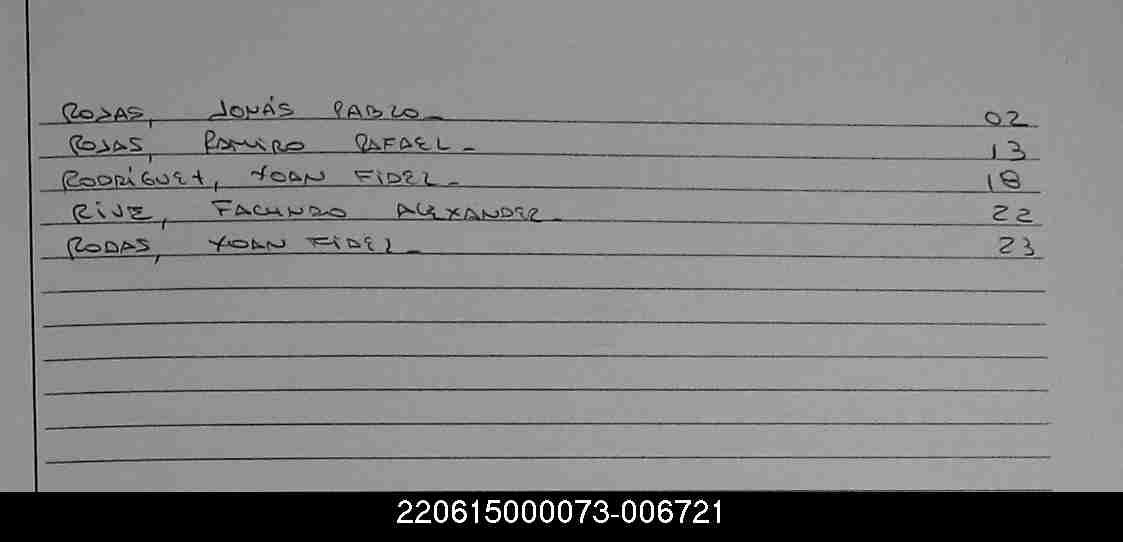 ROJAS, JONÁS PABLO 02
ROJAS, RAMIRO RAFAEL 13
RODRÍGUEZ, YOAN FIDEL 18
RIVE, FACUNDO ALEXANDER 22
RODAS, YOAN FIDEL 23
220615000073-006721